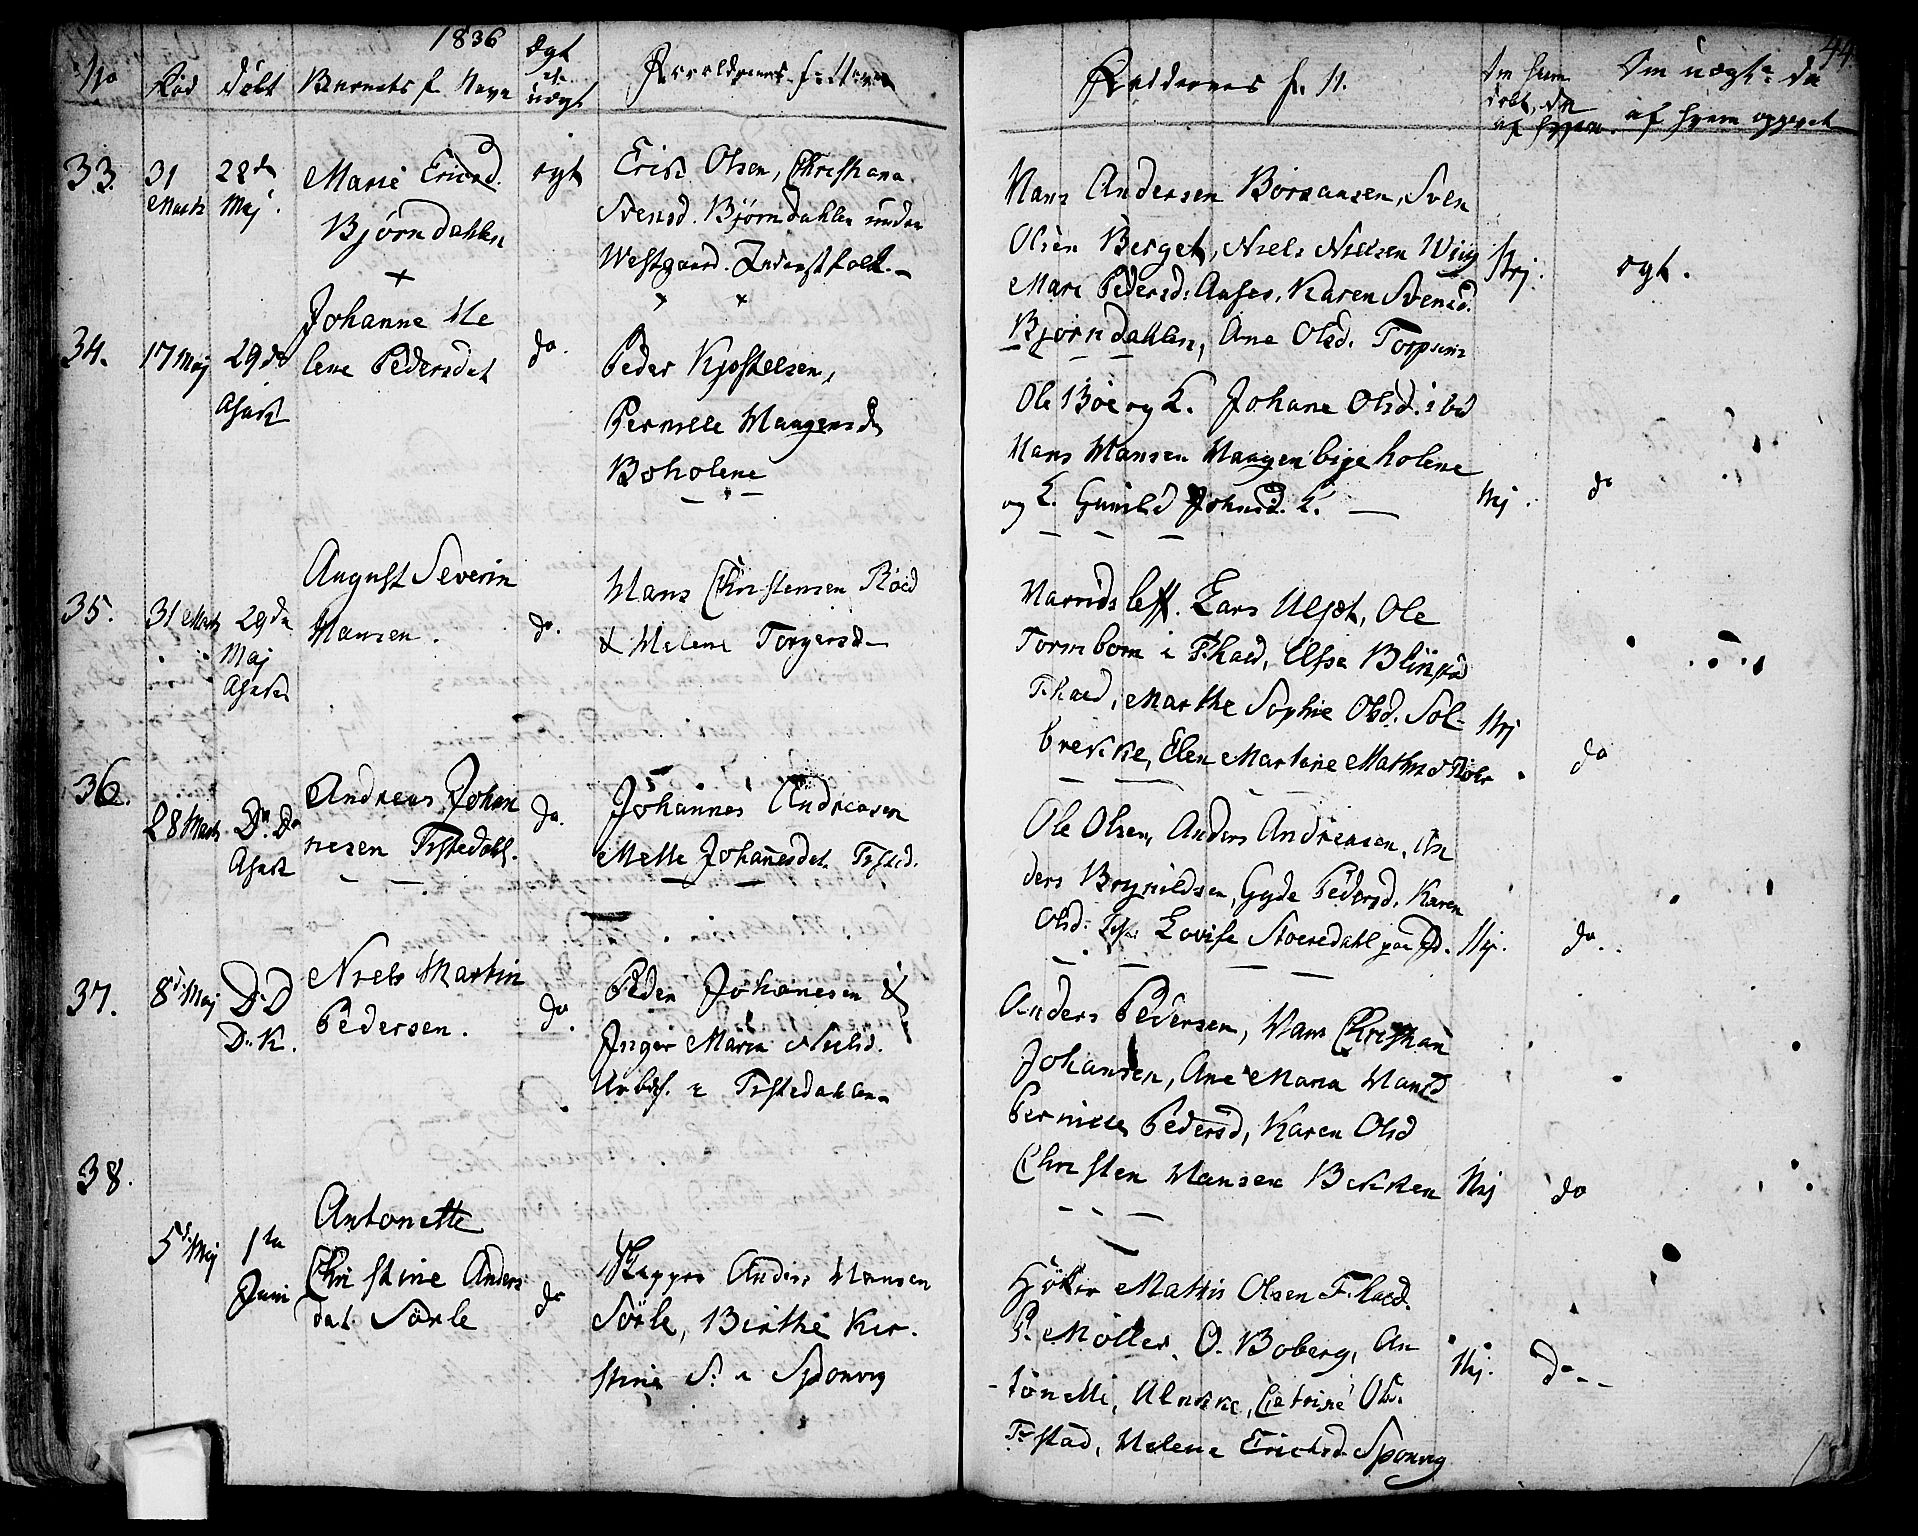 1836
44
No
Død
døbt
Barnets f. Navn
ægt
el.
uægt
Forældrenes
Faddernes f. N.
Om hjem
døbt, da
af hvem
Om uægte da
af hvem opgivet
33.
31
Marts
28de
Maj.
Marie Ericsd.
Bjørndahlen
ægt
Erik Olsen, Christiana
Svensd. Bjørndahlen under
Westgaard. Inderstfolk. -
Hans Andersen Börsaasen, Sven
Olsen Berget, Niels Nielsen Wiig
Mari Pedersd: Aases, Karen Svensd.
Bjørndahlen, Ane Olsd. Torpum
Nej.
ægt.
34.
17 Maj
29de
Asak
Johanne He
lene Pedersdat
do.
Peder Kjøstelsen,
Pernille Haagensd
Boholene
Ole Böe og K. Johane Olsd. ibd
Hans Hansen Haagenbyeholene
og K. Gunild Johnsd. K.
Nej.
do
35.
31 Marts
29de
Maj
Asak
August Severin
Hansen.
do.
Hans Christensen Röed
& Helene Torgersd
Lars Ulset, Ole
Tormbom i Fhald, Elsa
Fhald, Marthe Sophie Olsd. Sol-
brekke, Elen Martine Mathisd
Nej
do
36.
28 Marts
Do. Do
Asak
Andreas Johan
nesen Tistedahl.
do.
Johannes Andreasen
Mette Johannesdat. Tisted.
Ole Olsen, Anders Andreasen, An
ders Brynildsen, Gyde Pedersd. Karen
Olsd. Lovise
Nej.
do.
37.
8d. Maj
D. D
D. K.
Niels Martin
Pedersen.
do.
Peder Johanesen &
Inger Maria Nielsd.
Arbdf. i Tistedahlen
Anders Pedersen, Hans Christian
Johansen, Ane Maria Hansd
Pernille Pedersd, Karen Olsd
Christen Hansen Bakken
Nej
do
38.
5d. Maj
1ta
Juni
Antonette
Christine Anders
dat. Sörle
do
Skipper Anders Hansen
Sörle, Birthe Kir-
stine S. i Sponvig
Mathis Olsen F.hald.
P. Möller, O. Boberg, An
Catrine Ols.
Helene Erichsd. Sponvig
Nej.
do